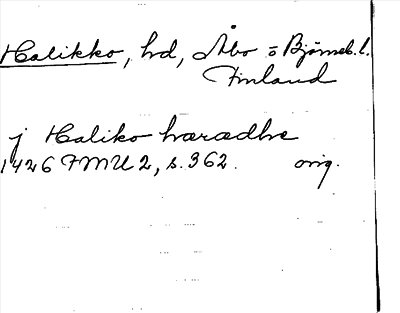 Halikko, hd, Åbo o Björneb. l.
Finland
j Haliko hæradhe
1426 FMU 2, s. 362. orig.